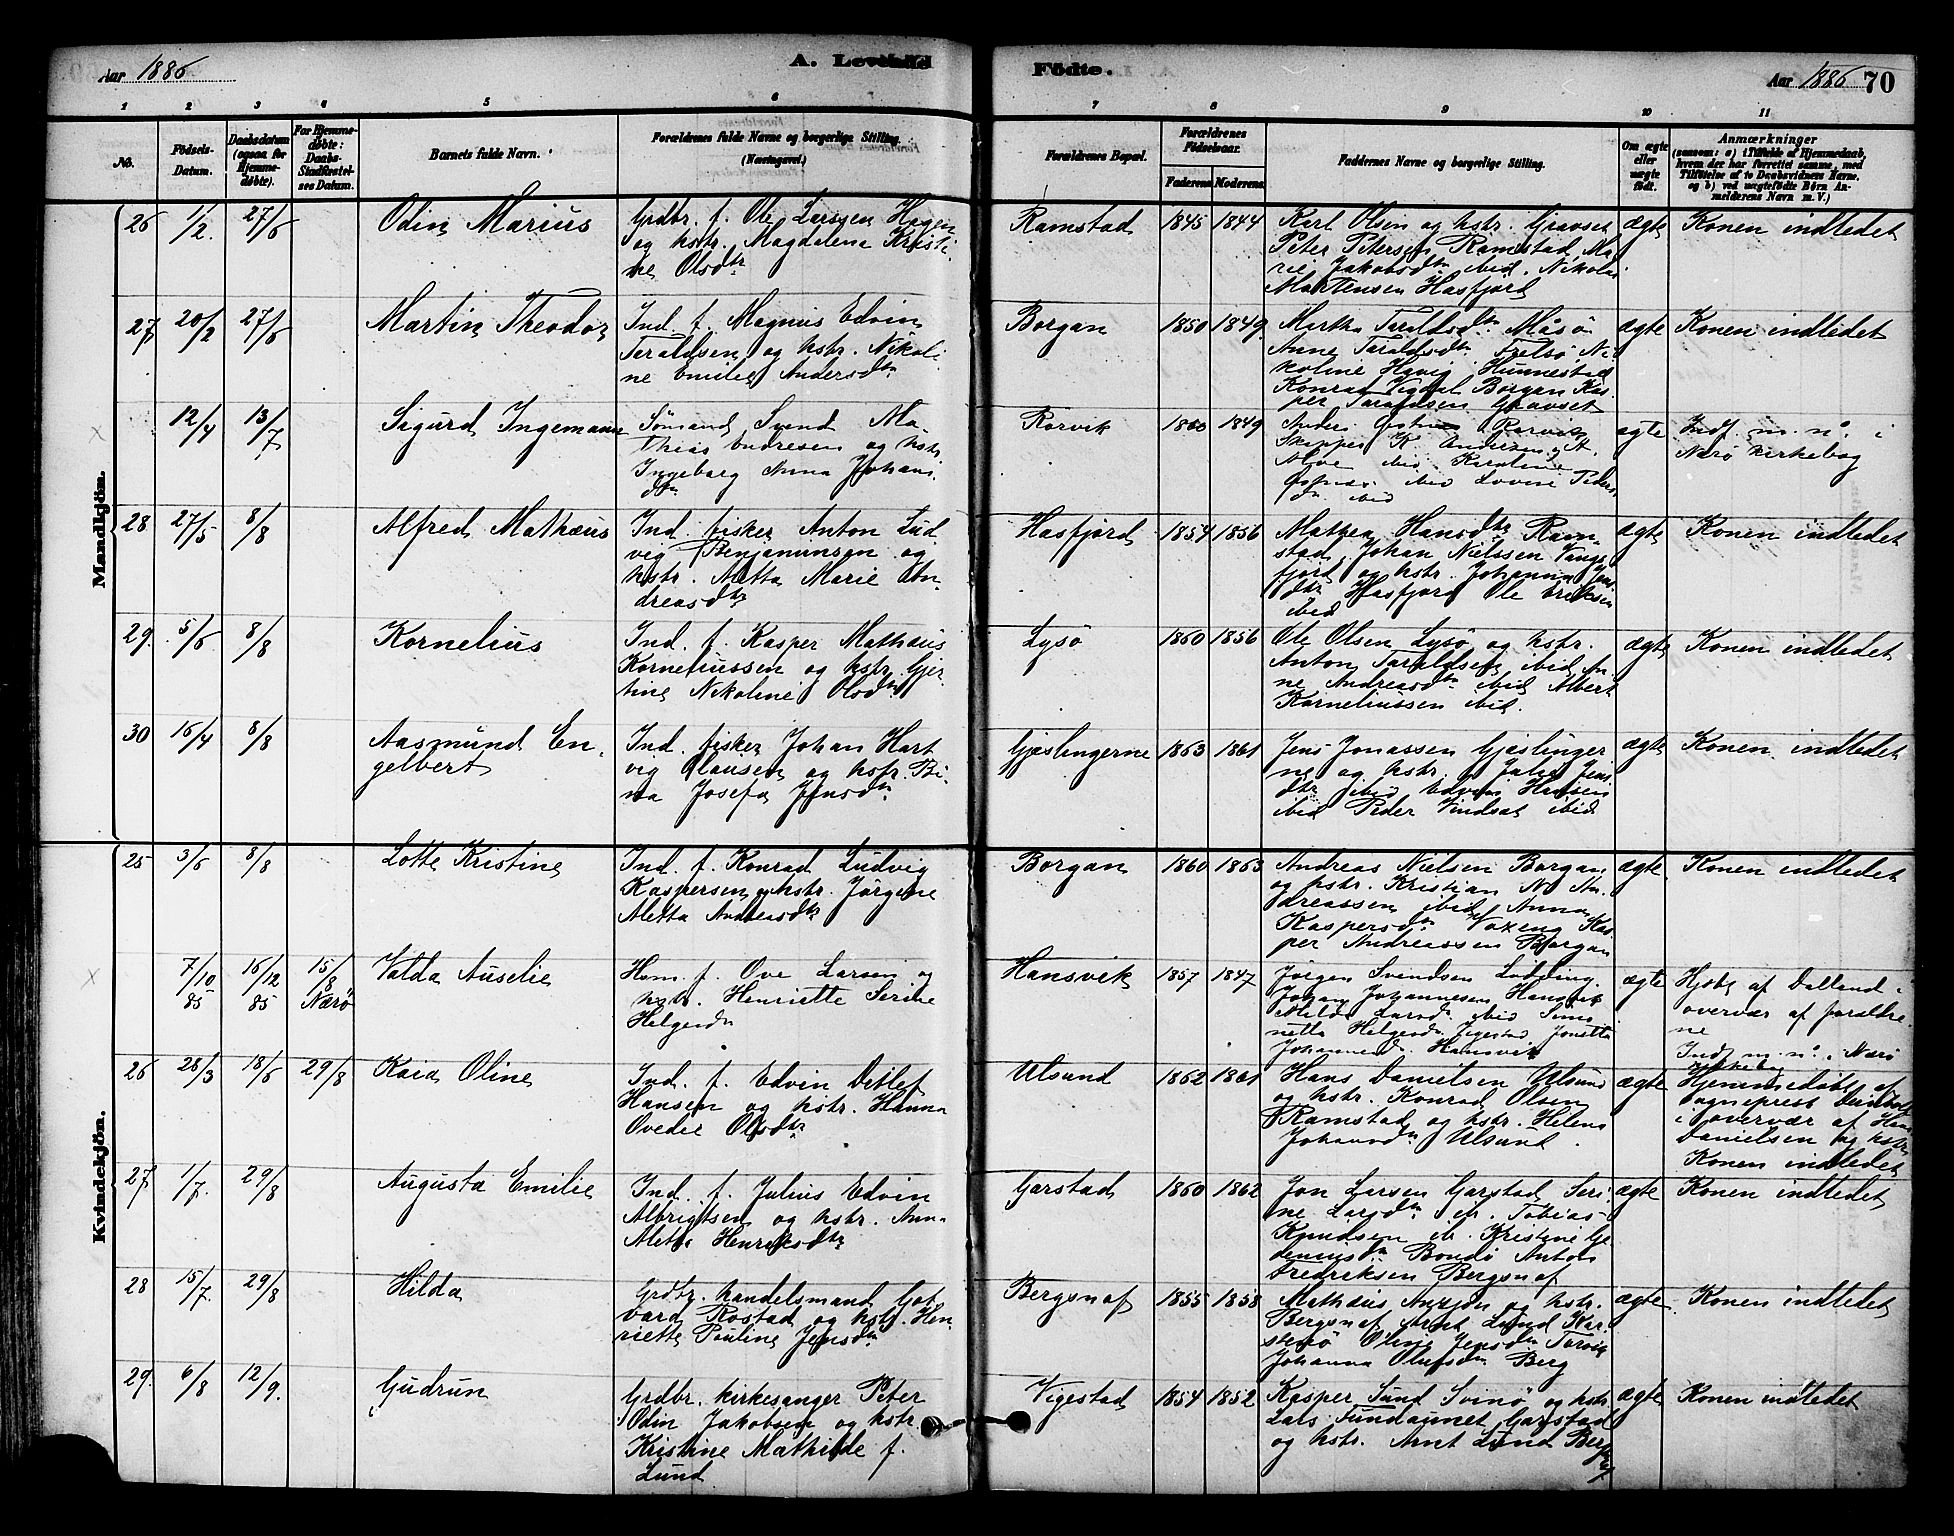 Aar 1886
A. Levende
Födte.
Aar 1886 70
1 2 3 4 5 6 7 8 9 10 11
No.
Födsels-
Datum.
Daabsdatum
(ogsaa for
Hjemme-
döbte).
For Hjemme-
døbte:
Daabs-
Stadfæstel-
ses Datum.
Barnets fulde Navn.
Forældrenes fulde Navne og borgerlige Stilling.
(Næringsvei.)
Forældrenes Bopæl.
Forældrenes
Födselsaar.
Faderens. Moderens.
Faddernes Navne og borgerlige Stilling.
Om ægte
eller
uægte
födt.
Anmærkninger
(saasom: a) i Tilfælde af Hjemmedaab,
hvem der har forrettet samme, med
Tilföielse af to Daabsvidners Navne,
og b) ved uægtefödte Börn An-
melderens Navn m. V.)
Mandkjön.
26 1/2. 27/6 Odin Marius
Grdbr. f. Ole Larssen Hagen
og hstr. Magdalena Kristi
ne Olsdtr
Ramstad 1845 1844
Karl Olsen og hstr. Gravset
Peter Petersen Ramstad Ma
rie Jakobsdtr ibid. Nikolai
Martensen Hasfjord
ægte Konen indledet
27 20/2 27/6 Martin Theodor
Ind. f. Magnus Edvin
Taraldsen og hstr. Nikoli
ne Emilie Andersdtr
Borgan 1850 1849.
Martha Taraldsdtr Måsø
Anne Taraldsdtr Frelsø Ni
koline Havig Hunnestad
Konrad Vigdal Borgan Kas
per Taraldsen Gravset
ægte Konen indledet
x 12/4 13/7 Sigurd Ingemann
Sømand Svend Ma
thias Andresen og hstr
Ingeborg Anna Johans
dtr
Rørvik 1860 1849
Anders Rørvik
Skipper K. Andersen
ibid Karoline
ibid Lovine Peders
dtr ibid
ægte Indf. m. no. i
Nærø kirkebog
28 27/5 8/8 Alfred Mathæus
Ind. fisker Anton Lud
vig Benjaminsen og
hstr. Aletta Marie An
dreasdtr
Hasfjord 1854 1856
Mathea Hansdtr Ram
stad, Johan Nielssen Vangs
fjord og hstr. Johanna Jens
dtr Hasfjord Ole Eriksen
ibid
ægte Konen indledet
29. 5/6 8/8 Kornelius
Ind. f. Kasper Mathæus
Korneliussen og hstr. Gjer
tine Nikoline Olsdtr
Lysø 1860 1856
Ole Olsen Lysø og hstr.
Anton Taraldsen ibid An
ne Andreasdtr ibid Albert
Korneliussen ibid.
ægte Konen indledet
30 16/4 8/8 Aasmund En
gelbert
Ind. fisker Johan Hart
vig Clausen og hstr. Bi
na Josefa Jensdtr
Gjæslingerne 1863 1861
Jens Jonassen Gjæslinger
ne og hstr. Julie Jens
dtr ibid Edvin Hansen
ibid Peder Vindsat ibid
ægte Konen indledet
Kvindekjön.
25 3/6 8/8 Lotte Kristine
Ind. f. Konrad Ludvig
Kaspersen og hstr. Jørgine
Aletta Andreasdtr
Borgan 1860 1863
Andreas Nielsen Borgan
og hstr. Kristian N. An
dreassen ibid Anna
Kaspersdtr Voxeng Kas
per Andreassen Borgan
ægte Konen indledet
x 7/10 85 16/12 85 15/8 Nærø Valda Auselie
Hom. f. Ove Larsen og
hstr. Henriette Serine
Helgesdtr
Hansvik 1857 1847
Jørgen Svendsen Lodding
Johan Johannesen Hansvik
Milda Larsdtr ibid Simo
netta Helgesdtr Vigestad Jonetta
Johannesdtr. Hansvik
ægte Hjdbt af Dalland i
overvær af forældre
ne
Indf m. no. i Nærø
kirkebog
26 28/3 18/6 29/8 Kaia Oline
Ind. f. Edvin Ditlef
Hansen og hstr. Hanna
Ovedie Olsdtr
Ulsund 1862 1861
Hans Danielsen Ulsund
og hstr. Konrad Olsen
Ramstad og hstr. Helena
Johansdtr Ulsund.
ægte Hjemmedøbt af
sognepræst
i overvær af Hans
Danielsen og hstr
Konen indledet
27 1/7. 29/8 Augusta Emilie
Ind. f. Julius Edvin
Albrigtsen og hstr. Ann
Aletta Henriksdtr
Garstad 1860 1862
Jon Larsen Garstad Seri
ne Larsdtr ib. Tobias
Knudsen ib. Kristine Ge
Bondø Anton
Fredriksen Bergsnaf
ægte Konen indledet
28 15/7. 29/8 Hilda
Grdbr. handelsmand Got
vard Rostad og hstr. Hen
riette Pauline Jensdtr
Bergsnaf 1855 1858
Mathæus og hstr.
Bergsnaf Arnt Lund Kar
stenø Oline Jensdtr
Johanna Olufsdtr Berg
ægte Konen indledet
29. 6/8 12/9. Gudrun
Grdbr. kirkesanger Peter
Odin Jakobsen og hstr
Kristine Mathilde f.
Lund
Vigestad 1854 1852
Kasper Lund Svinø og hstr
Lars Garstad
og hstr. Arnt Lund
ægte Konen indledet